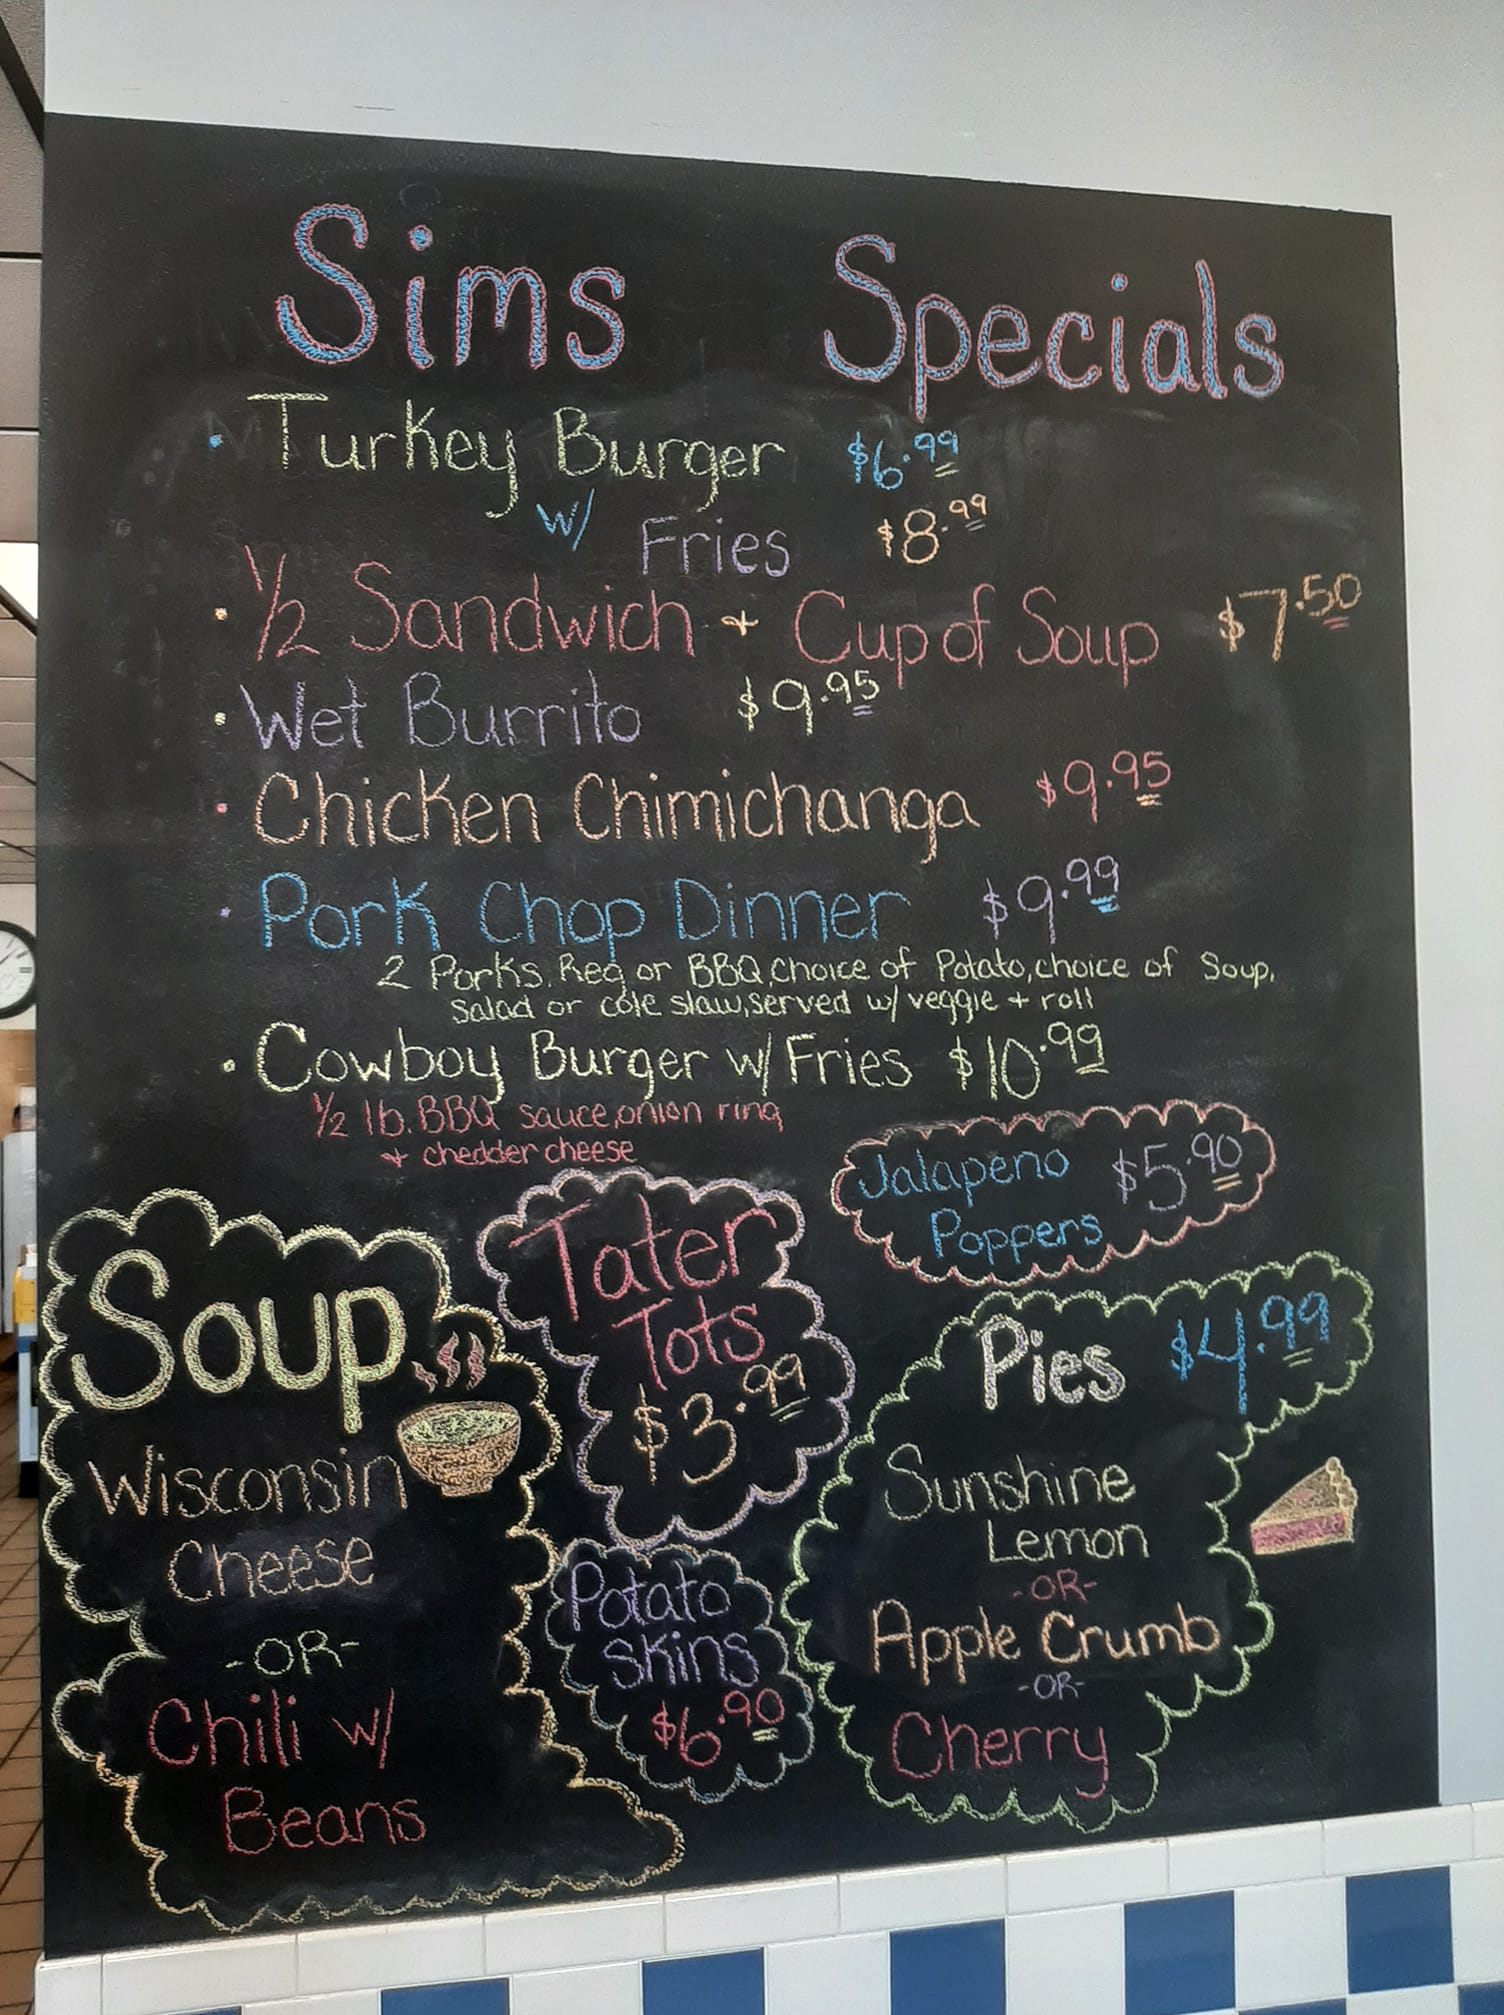 Sims Specials
· Turkey Burger $6.99
w/ Fries $8.99
· 1/2 Sandwich + Cup of Soup $7.50
· Wet Burrito $9.95
· Chicken Chimichanga $9.95
· Pork Chop Dinner $9.99
2 Porks. Reg or BBQ, choice of Potato, choice of Soup,
Salad or cole slaw, served w/ veggie + roll
· Cowboy Burger w/ Fries $10.99
1/2 lb. BBQ sauce, onion ring
+ chedder cheese
Jalapeno $5.90
Poppers
Soup
Wisconsin
Cheese
-OR-
Chili w/
Beans
Tater
Tots
$3.99
Potato
Skins
$6.90
Pies $4.99
Sunshine
Lemon
-OR-
Apple Crumb
-OR-
Cherry